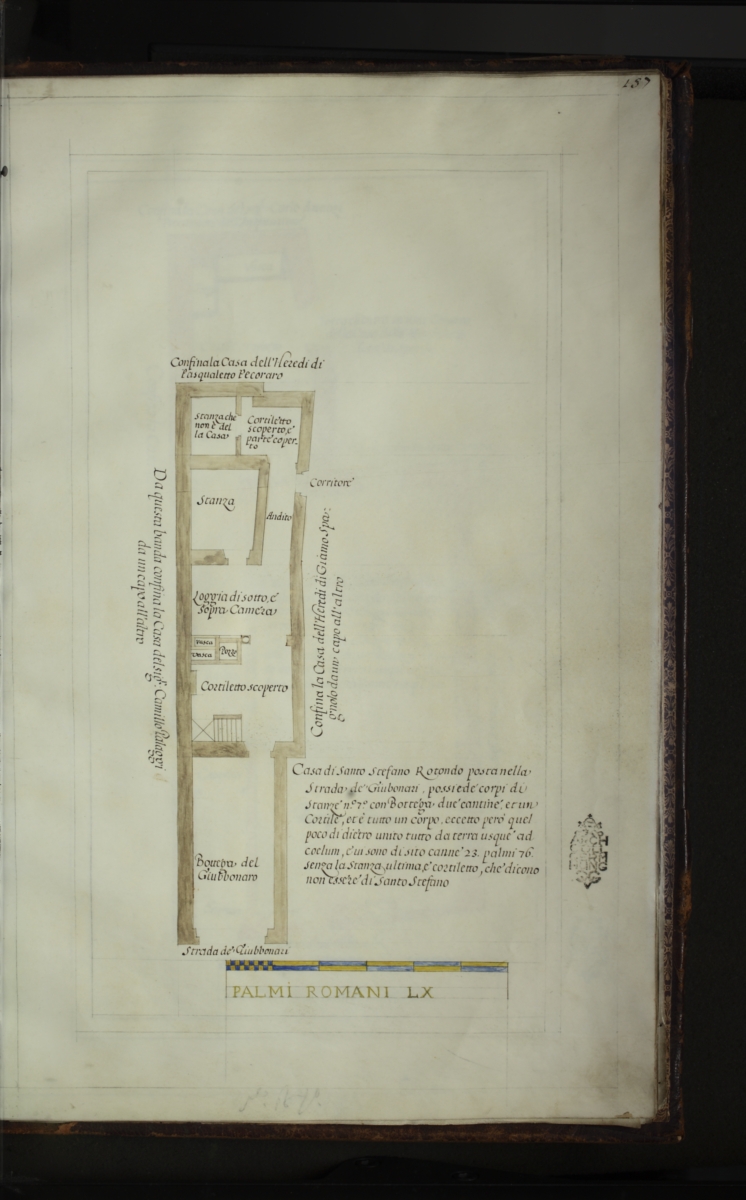 157
Confina la Casa dell'Heredi di
Pasqualetto Pecoraro
Stanza che
non è del
la Casa
Cortiletto
scoperto, e
parte coper-
to
Corritore
Stanza
Andito
Da questa banda confina la Casa del sigr. Camillo
da un capo all'altro
Confina la Casa dell'Heredi di Giamo Spa-
gnolo da un capo all'altro
Loggia di sotto, e
sopra Camera
Vasca
Vasca
Pozzo
Cortiletto scoperto
Casa di Santo Stefano Rotondo posta nella
Strada de' Giubonari, possiede corpi di
Stanze n.º 7.º con Bottega due cantine, et un
Cortile, et è tutto un corpo, eccetto però quel
poco di dietro unito tutto da terra usque ad
coelum, e vi sono di sito canne 23. palmi 76.
senza la Stanza ultima, e cortiletto, che dicono
non essere di Santo Stefano
Bottega del
Giubbonaro
Strada de Giubbonari
PALMI ROMANI LX